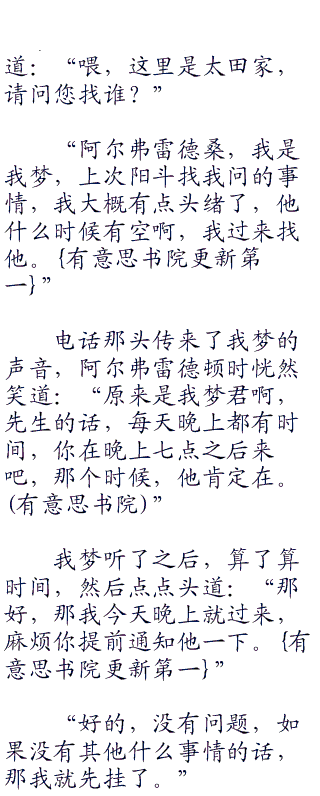 道：“喂，这里是太田家，
请问您找谁？”
“阿尔弗雷德桑，我是
我梦，上次阳斗找我问的事
情，我大概有点头绪了，他
什么时候有空啊，我过来找
他。{有意思书院更新第
一}”
电话那头传来了我梦的
声音，阿尔弗雷德顿时恍然
笑道：“原来是我梦君啊，
先生的话，每天晚上都有时
间，你在晚上七点之后来
吧，那个时候，他肯定在。
(有意思书院)”
我梦听了之后，算了算
时间，然后点点头道：“那
好，那我今天晚上就过来，
麻烦你提前通知他一下。{有
意思书院更新第一}”
“好的，没有问题，如
果没有其他什么事情的话，
那我就先挂了。”